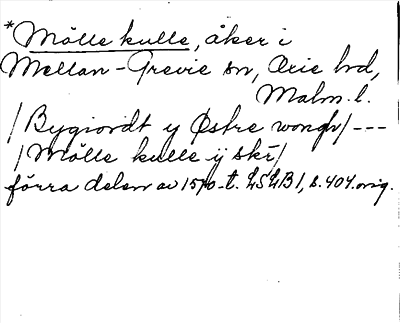 *Mölle kulle, åker i
Mellan-Grevie sn, Oxie hd,
Malm. l.
/Bygiordt y Østre wongh/---
/Mölle kulle ÿ skr/
förra delen av 1570-t. LSLB1, s. 404. orig.